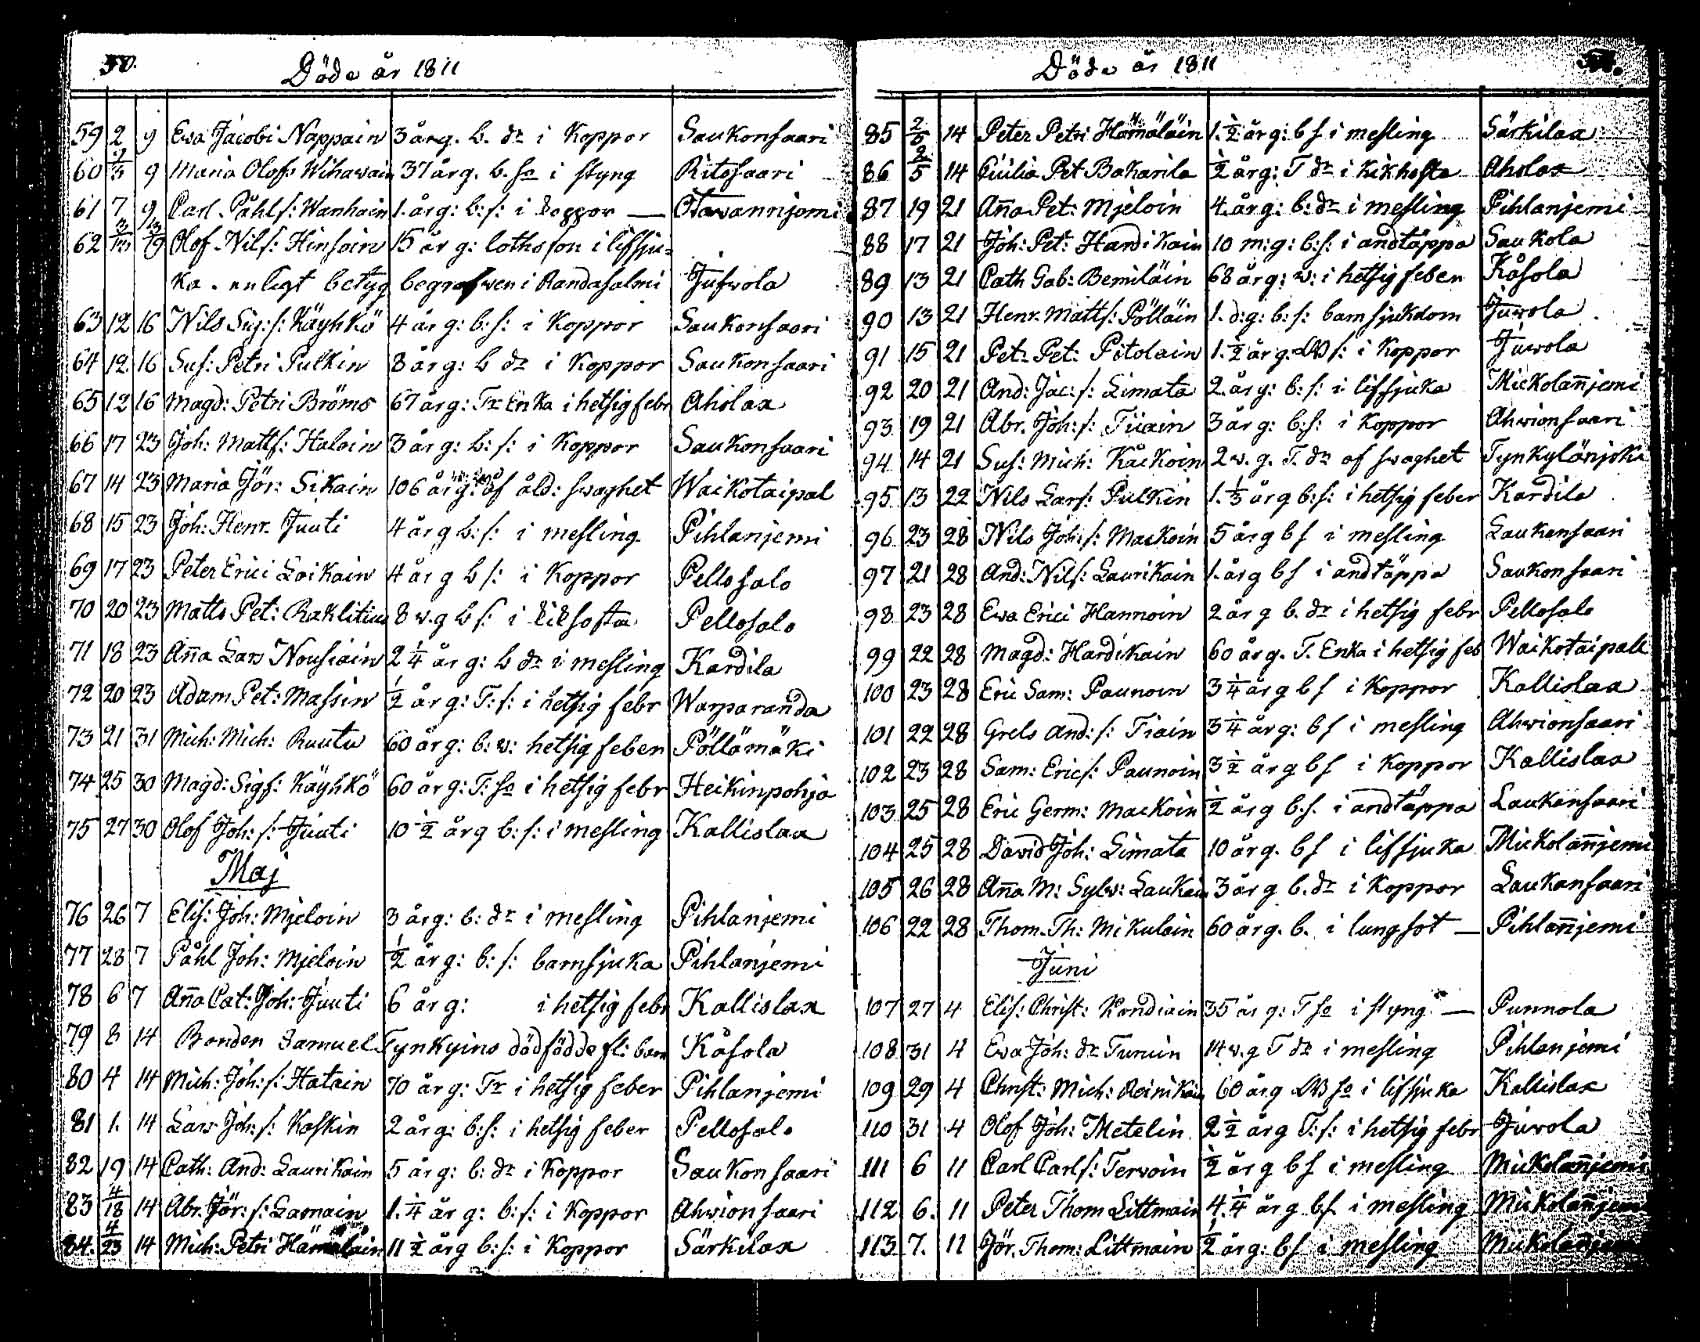 50.
Döde år 1811
59 2 9 Ewa Jacobi Nappain 3 årg. b. dr i Koppor Saukonsaari
60 9/3 9 Maria Olofs Wihawain 37 årg. b. ho i styng Ritosaari
61 7 9 Carl Påhls: Wanhain 1. årg: b: s: i koppor — Otawannjemi
62 Olof Nils: Hinsoin 15 år g: lothsson i lifsju-
ka. enligt betyg begrafwen i Randasalmi Jufwola
63 12 16 Nils Sig: s: Käyhkö 4 år g: b: s: i Koppor Saukonsaari
64 12 16 Sus: Petri Pulkin 8 årg: b dr i Koppor Saukonsaari
65 12 16 Magd: Petri Bröms 67 årg: Tr Enka i hetsig febr Aholax
66 17 23 Joh: Matts: Haloin 3 år g: b: s: i Koppor Saukonsaari
67 14 23 Maria Jör: Sikain 106 årg: af åld: swaghet Waikotaipal
68 15 23 Joh: Henr. Juuti 4 årg b: s: i mesling Pihlanjemi
69 17 23 Peter Erici Loikain 4 år g b s: i Koppor Pellosalo
70 20 23 Matts Pet: Raklitius 8 w. g b s: i kikhosta Pellosalo
71 18 23 Aña Lars Nousiain 2 1/4 år g: b dr i mesling Kardila
72 20 23 Adam Pet: Massin 1/2 år g: T: s: i hetsig febr Warparanda
73 21 31 Mich: Mich: Ruutu 60 årg: b: w: hetsig feber Pöllämäki
74 25 30 Magd: Sigf: Käyhkö 60 årg: T: ho i hetsig febr Heikinpohja
75 27 30 Olof Joh: s: Juuti 10 1/2 årg b: s: i mesling Kallislax
Maj
76 26 7 Elis: Joh: Mjeloin 3 årg: b: dr i mesling Pihlanjemi
77 28 7 Påhl Joh: Mjeloin 1/2 år g: b: s: barnsjuka Pihlanjemi
78 6 7 Aña Cat: Joh: Juuti 6 år g: i hetsig febr Kallislax
79 8 14 Bonden Samuel Tynkyins dödfödda fl: barn Kåsola
80 4 14 Mich: Joh: s: Hatain 70 årg: Tr i hetsig feber Pihlanjemi
81 1. 14 Lars Joh: s: Koskin 2 årg: b: s: i hetsig feber Pellosalo
82 19 14 Cath: And: Laurikain 5 år g: b: dr i Koppor Saukonsaari
83 4/18 14 Abr. Jör: s: Lamain 1. 1/4 år g: b: s: i Koppor Ahvionsaari
84. 4/23 14 Mich: Petri Hämäläin 11 1/2 årg b: s: i Koppor Särkilax
Döde år 1811
85 2/5 14 Peter Petri Hämäläin 1. 1/2 år g: b s i mesling Särkilax
86 2/5 14 Juulia Pet Bakarila 1/2 årg: T dr i kikhosta Aholax
87 19 21 Aña Pet: Mjeloin 4. årg: b: dr i mesling Pihlanjemi
88 17 21 Joh: Pet: Hardikain 10 m: g: b: s: i andtäppa Saukola
89 13 21 Cath Gab: Bemiläin 68 årg: w: i hetsig feber Kåsola
90 13 21 Henr. Matts: Pölläin 1. d: g: b: s: barnsjukdom Juwola
91 15 21 Petr Pet: Pitolain 1. 1/2 årg. s: i Koppor Juwola
92 20 21 And: Jac: s: Limata 2. årg: b: s: i lifsjuka Mickolañjemi
93 19 21 Abr. Joh: s: Tiiain 3 år g: b: s: i Koppor Ahvionsaari
94. 14 21 Sus: Mich: Kåckoin 2 w. g. T. dr af swaghet Tynkylänjoki
95 13 22 Nils Lars: Pulkin 1. 1/3 årg b: s: i hetsig feber Kardila
96 23 28 Nils Joh: s: Mackoin 5 årg b s i mesling Laukansaari
97 21 28 And: Nils: Laurikain 1. årg b s i andtäppa Saukonsaari
98 23 28 Ewa Erici Hannoin 2 år g b. dr i hetsig febr Pellosalo
99 22 28 Magd: Hardikain 60 årg. T. Enka i hetsig feb Waikotaipall
100 23 28 Eric Sam: Paunoin 3 1/4 årg b s i Koppor Kallislax
101 22 28 Grels And: s: Tiain 3 1/4 årg: b s i mesling Ahvionsaari
102 23 28 Sam: Erics: Paunoin 3 1/2 årg b s i Koppor Kallislax
103 25 28 Eric Germ: Mackoin 1/2 årg b: s. i andtäppa Laukansaari
104 25 28 David Joh: Limata 10 årg. b s i lifsjuka Mickolañjemi
105 26 28 Aña M: Sylv: Laukain 3 årg b. dr i Koppor Laukansaari
106 22 28 Thom. Th: Mikulain 60 årg. b. i lungsot — Pihlañjemi
Juni
107 27 4 Elis: Christ: Kondiain 35 år g: T ho i styng — Punnola
108 31 4 Ewa Joh: dr Tunuin 14 w. g T dr i mesling Pihlanjemi
109 29 4 Christ: Mich: Reinikain 60 årg ho i lifsjuka Kallislax
110 31 4 Olof Joh: Metelin 2 1/2 årg T: s: i hetsig febr Juwola
111 6 11 Carl Carls: Terwoin 1/2 årg b s i mesling Mickolañjemi
112 6. 11 Peter Thom Littmain 4. 1/4 år g b s i mesling Mickolañjemi
113 7. 11 Jör. Thom: Littmain 1/2 årg: b s i mesling